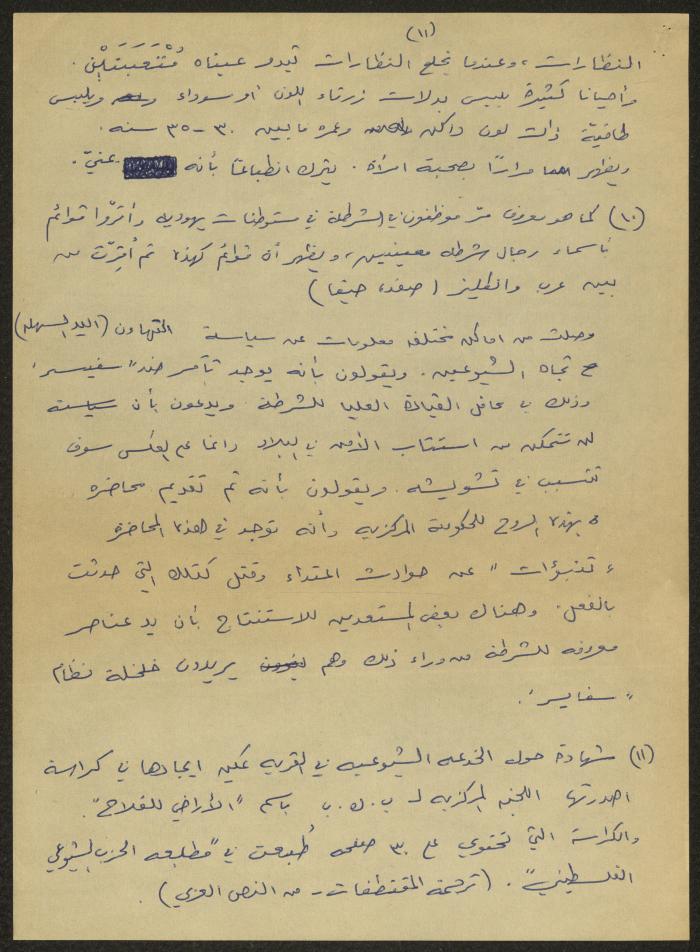 (١١)
النظارات، وعندما يخلع النظارات تبدو عيناه مُتْعَبَتَيْن.
وأحيانا كثيرة يلبس بدلات زرقاء اللون أو سوداء ويلبس
طاقيّة ذات لون داكن وعمره ما بين ٣٠-٣٥ سنه.
ويظهر مرارًا بصحبة امرأة. يترك انطباعًا بأنه غنيّ.
(١٠) كما هو معروف مرّ موظفون في الشرطة في مستوطنات يهوديه وأقرّوا قوائم
بأسماء رجال شرطه معينيين، ويظهر أن قوائم كهذه تم أُقِرّت من
بين عرب وانكليز (صفد، حيفا)
وصلت من اماكن مختلفه معلومات عن سياسة التهاون (اليد السهله)
تجاه الشيوعيين. ويقولون بأنه يوجد تآمر ضد "سفيسر"
وذلك في محافل القيادة العليا للشرطة ويدعون بأن سياسته
لن تتمكن من استتباب الأمن في البلاد وانما على العكس سوف
تتسبب في تشويشه. ويقولون بأنه تم تقديم محاضره
بهذه الروح للحكومة المركزيه وأنه توجد في هذه المحاضرة
"تنبؤات" عن حوادث اعتداء وقتل كتلك التي حدثت
بالفعل. وهناك بعض المستعدين للاستنتاج بأن يد عناصر
معروفه للشرطة من وراء ذلك وهم يريدون خلخلة نظام
"سفايسر".
(١١) شهادة حول الخدعه الشيوعيه في القريه يمكن ايجادها في كراسة
اصدرتها اللجنه المركزيه لـ ب.ك.ب باسم "الأراضي للفلاح".
والكراسة التي تحتوي على ٣٠ صفحه طُبعت في "مطبعه الحزب الشيوعي
الفلسطيني". (ترجمة المقتطفات - من النص العربي).